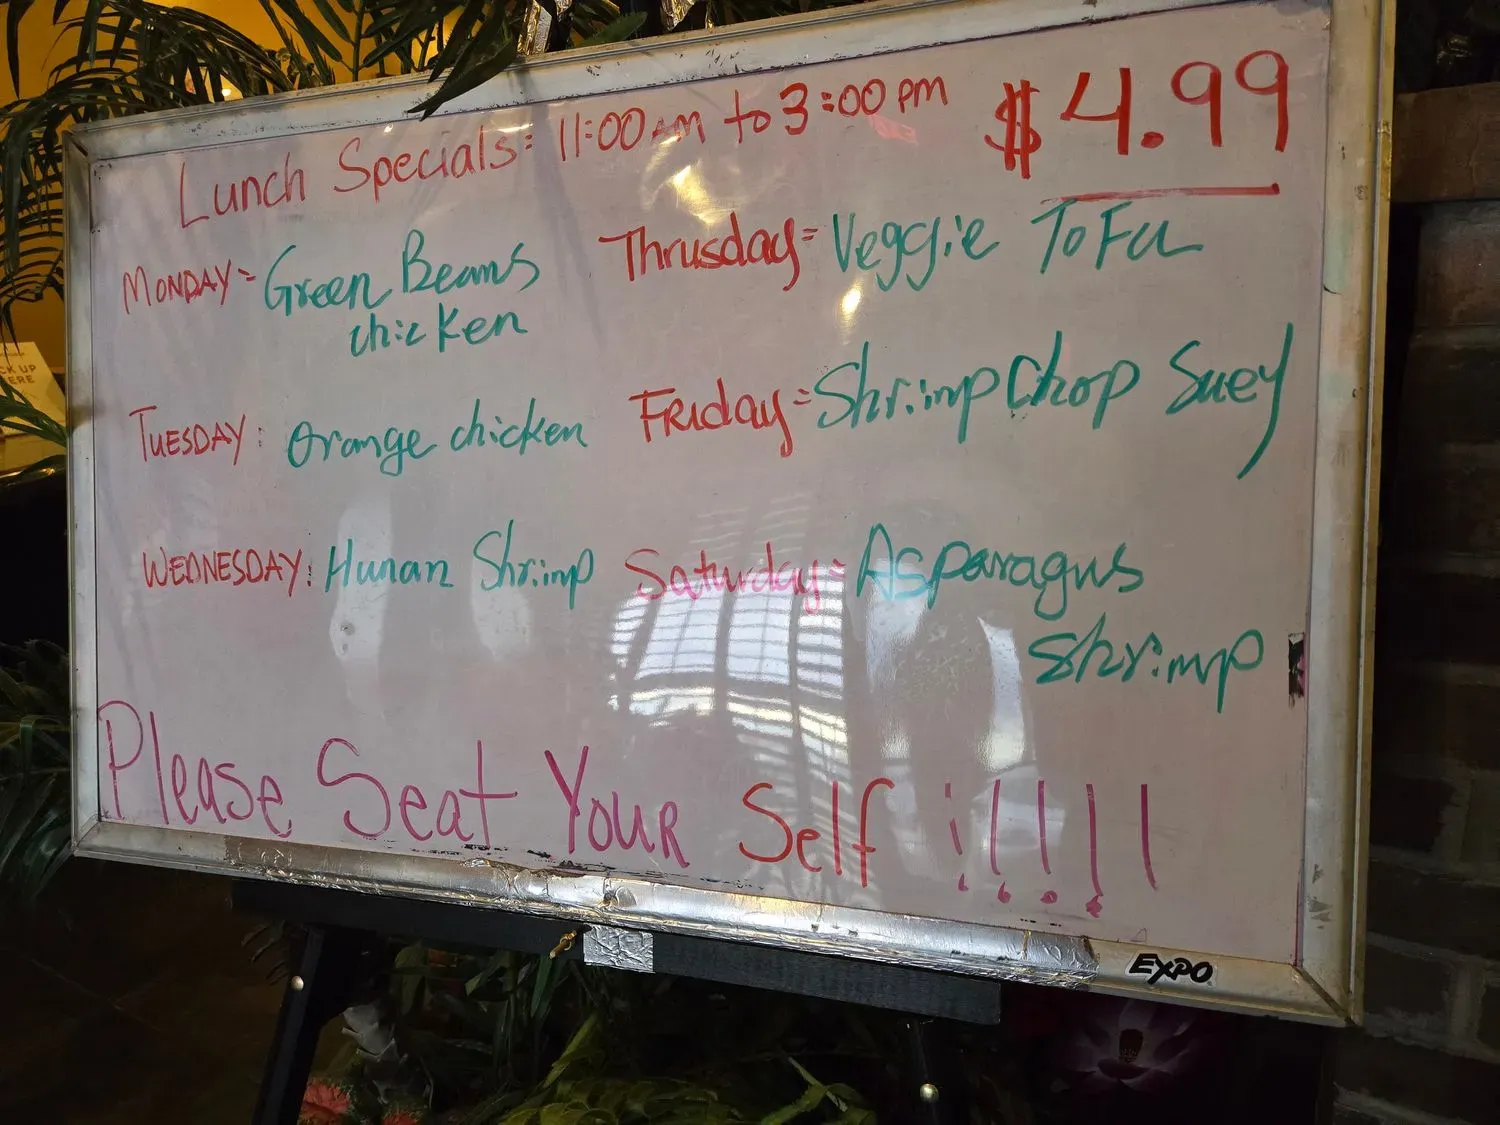 Lunch Specials: 11:00 AM to 3:00 PM $4.99
MONDAY = Green Beans
chicken
TUESDAY: Orange chicken
WEDNESDAY: Hunan Shrimp
Thrusday = Veggie ToFu
Friday = Shrimp Chop Suey
Saturday = Asparagus
Shrimp
Please Seat Your Self !!!!!
EXPO
UP
ERE